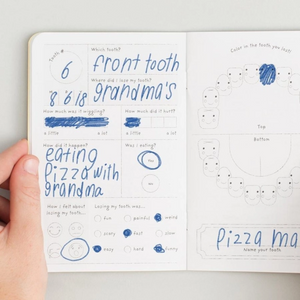 Tooth #
6
Which tooth?
front tooth
Where did I lose my tooth?
8 6 18
grandma's
How much was it wiggling?
How much did it hurt?
a little
a lot
a little
a lot
How did it happen?
eating
pizza with
grandma
Was I eating?
Yes
No
How I felt about
losing my tooth...
Losing my tooth was...
fun
painful
weird
scary
fast
slow
easy
hard
funny
Color in the tooth you lost!
Top
Bottom
pizza ma
Name your tooth